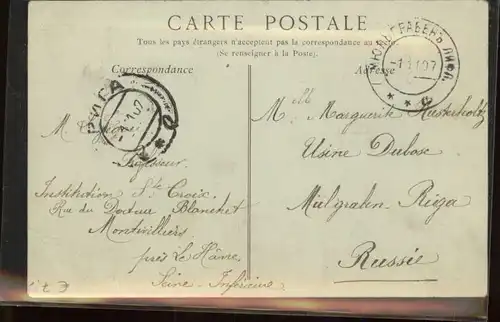 CARTE POSTALE
Tous les pays étrangers n'acceptent pas la correspondance au
(Se renseigner à la Poste).
Correspondance
Adresse
МЮЛЬГРАБЕНЪ ЛИФЛ.
РИГА
M.
Professeur
Institution Ste Croix
Rue du Docteur Blanchet
Montivilliers
près Le Hâvre
Seine-Inférieure
Melle Marguerite
Usine Dubosc
Mülgraben Riga
Russie